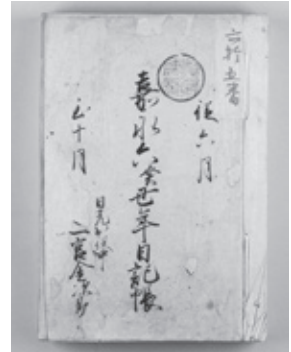 六拾五番
従六月
嘉永六癸丑年日記帳
至十月
日光
二宮金次郎